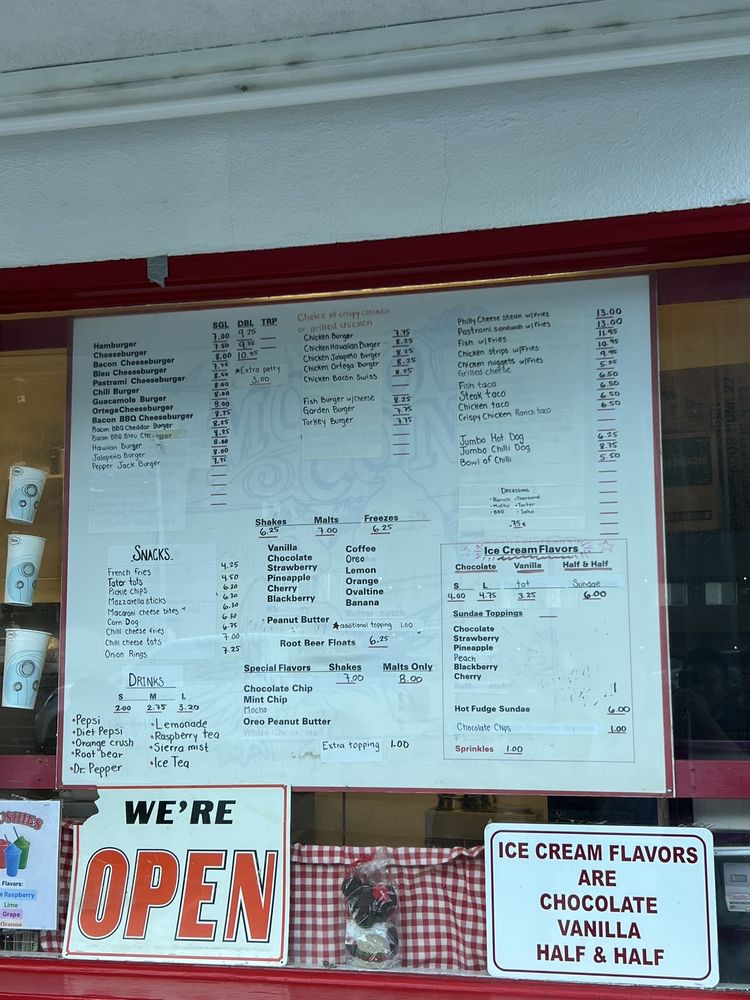 SGL DBL TRP
Hamburger 7.00 9.25
Cheeseburger 7.50 9.75
Bacon Cheeseburger 8.00 10.75
Bleu Cheeseburger 7.75
Pastrami Cheeseburger 8.50
Chili Burger 8.00
Guacamole Burger 8.00
Ortega Cheeseburger 8.00
Bacon BBQ Cheeseburger 8.75
Bacon BBQ Cheddar Burger
Bacon BBQ Bleu
Hawiian Burger 8.00
Jalapeño Burger 8.00
Pepper Jack Burger 7.75
*Extra patty
3.00
Choice of crispy chicken
or grilled chicken
Chicken Burger 7.75
Chicken Hawaiian Burger 8.25
Chicken Jalapeño Burger 8.25
Chicken Ortega Burger 8.25
Chicken Bacon Swiss 8.25
Fish Burger w/Cheese 8.25
Garden Burger 7.75
Turkey Burger 7.75
Philly Cheese steak w/Fries 13.00
Pastrami sandwich w/Fries 13.00
Fish w/Fries 11.95
Chicken strips w/Fries 10.95
Chicken nuggets w/Fries 9.95
Grilled cheese
Fish taco 6.50
Steak taco 6.50
Chicken taco 6.50
Crispy Chicken Ranch taco
Jumbo Hot Dog 6.25
Jumbo Chilli Dog 8.75
Bowl of Chilli 5.50
DRESSING
•Ranch •Thousand
•Tartar
•BBQ •Salsa
.75¢
SNACKS
French fries 4.25
Tater tots 4.50
Pickle chips
Mozzarella sticks
Macaroni cheese bites
Corn Dog
Chilli cheese fries 6.75
Chili cheese tots 7.00
Onion Rings 7.25
DRINKS
S M L
2.00 2.75 3.20
•Pepsi
•Diet Pepsi
•Orange crush
•Root bear
•Dr. Pepper
•Lemonade
•Raspberry tea
•Sierra mist
•Ice Tea
Shakes Malts Freezes
6.25 7.00 6.25
Vanilla
Chocolate
Strawberry
Pineapple
Cherry
Blackberry
Peanut Butter
Coffee
Oreo
Lemon
Orange
Ovaltine
Banana
★additional topping 1.00
Root Beer Floats 6.25
Special Flavors Shakes Malts Only
7.00 8.00
Chocolate Chip
Mint Chip
Mocha
Oreo Peanut Butter
Extra topping 1.00
Ice Cream Flavors
Chocolate Vanilla Half & Half
S L tot Sundae
4.00 4.75 3.25 6.00
Sundae Toppings
Chocolate
Strawberry
Pineapple
Peach
Blackberry
Cherry
Hot Fudge Sundae 6.00
Chocolate Chips 1.00
Sprinkles 1.00
Flavors:
Raspberry
Lime
Grape
WE'RE
OPEN
ICE CREAM FLAVORS
ARE
CHOCOLATE
VANILLA
HALF & HALF